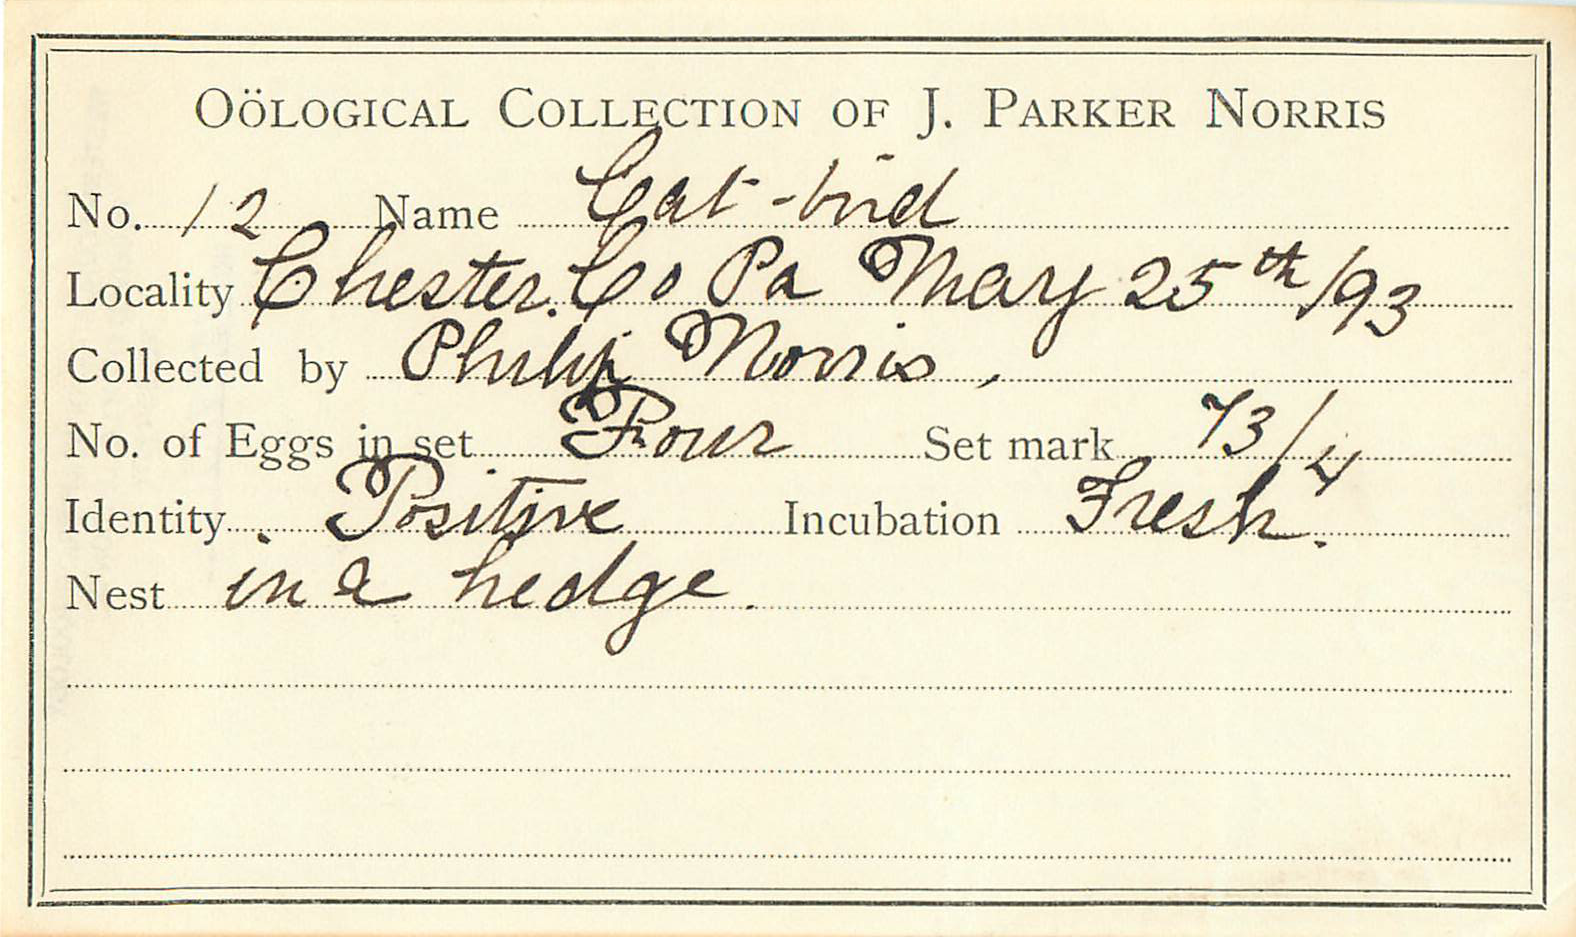 OÖLOGICAL COLLECTION OF J. PARKER NORRIS
No. 12 Name Cat-bird
Locality Chester. Co Pa May 25th/93
Collected by Philip Norris,
No. of Eggs in set Four Set mark 73/4
Identity Positive Incubation Fresh.
Nest in a hedge.